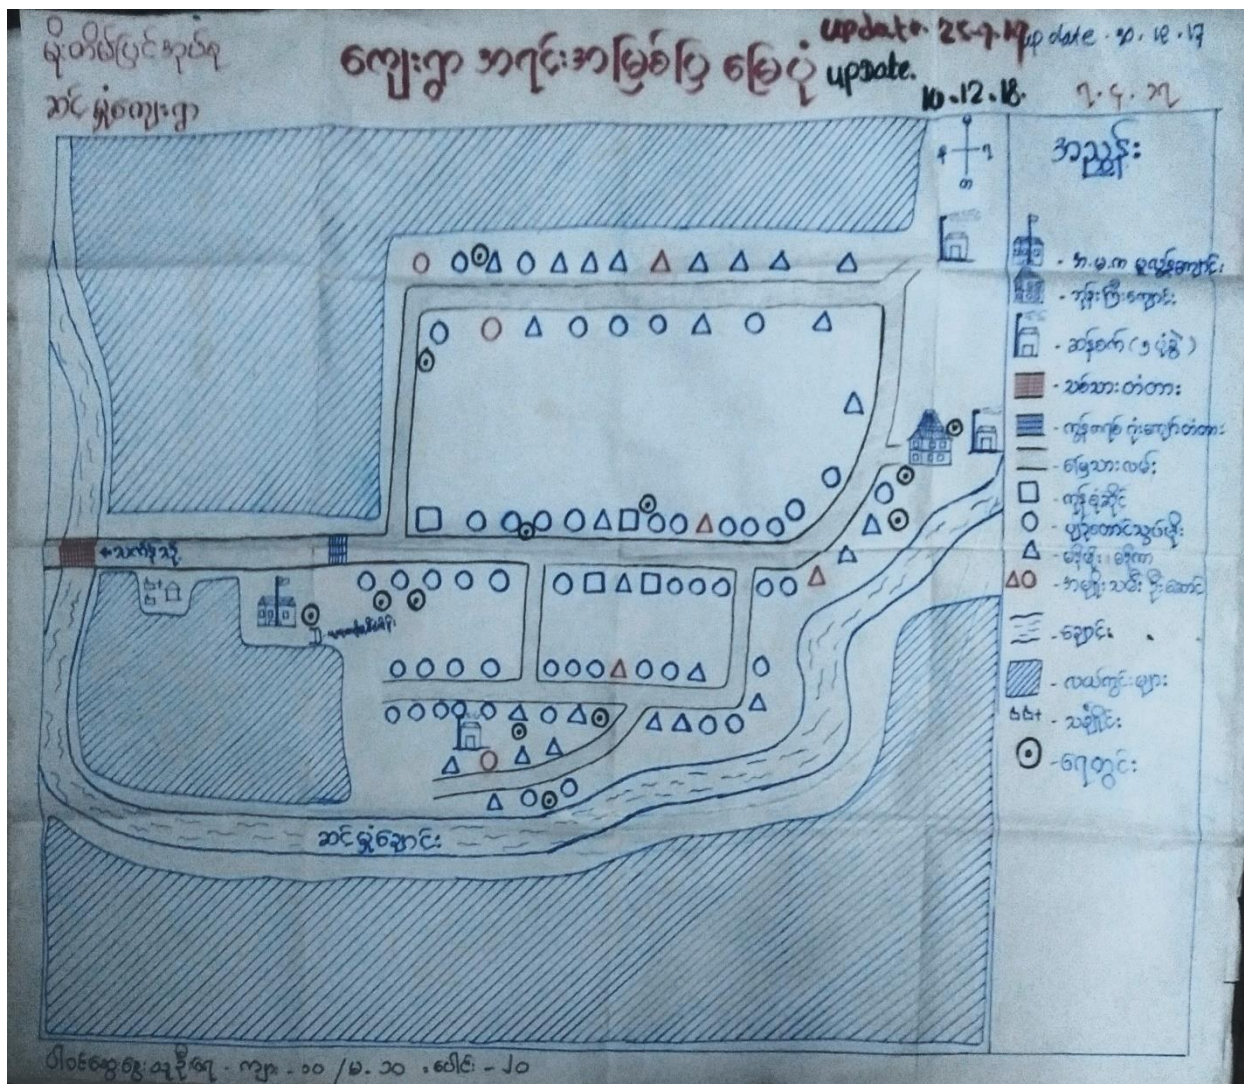 မိုးတိမ်ပြင်အုပ်စု
ဆင်မှုံကျေးရွာ
ကျေးရွာ အရင်းအမြစ်ပြ မြေပုံ
update. 25.9.17
update. ၁၀.၁၂.၁၇
update.
10.12.18.
၇.၄.၁၇
အညွှန်း
- အ.မ.က မူလွန်ကျောင်း
- ဘုန်းကြီးကျောင်း
- ဆန်စက် (၅ ပုံခွဲ)
- သစ်သားတံတား
- ကွန်ကရစ် ဂုံးကျော်တံတား
- မြေသားလမ်း
- ကုန်စုံဆိုင်
မုဆိုးဖို၊ မုဆိုးမ
- အမျိုးသမီး ဦးဆောင်
- ချောင်း
- လယ်ကွင်းများ
- သင်္ချိုင်း
- ရေတွင်း
ဆင်မှုံချောင်း
ပါဝင်ဆွေးနွေးသူဦးရေ - ကျား - ၁၀ / မ - ၁၀ . ပေါင်း - ၂၀